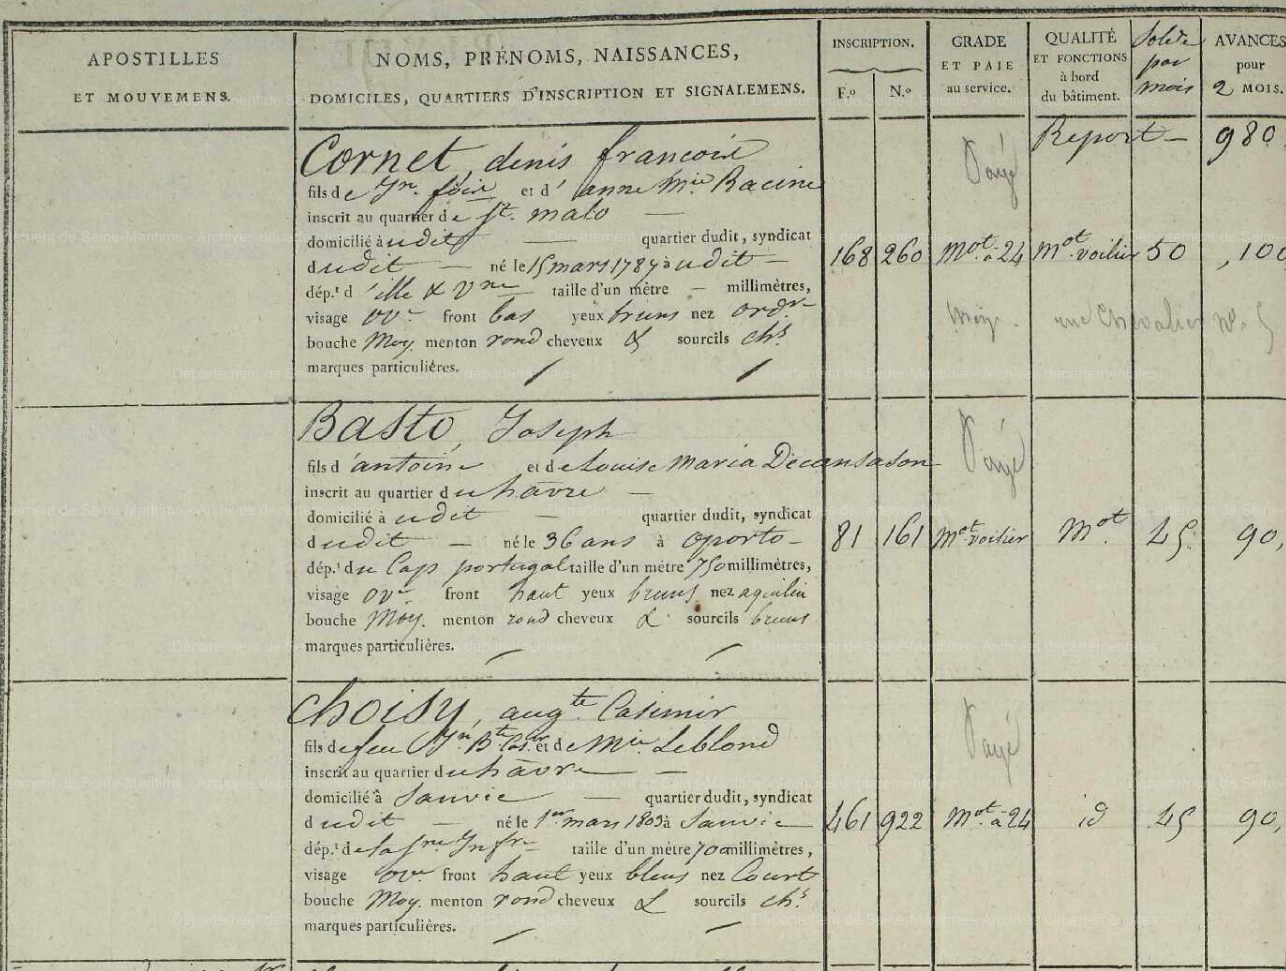 APOSTILLES
ET MOUVEMENS.
NOMS, PRÉNOMS, NAISSANCES,
DOMICILES, QUARTIERS D'INSCRIPTION ET SIGNALEMENS.
INSCRIPTION.
F.º N.º
GRADE
ET PAIE
au service.
QUALITÉ
ET FONCTIONS
à bord
du bâtiment.
Solde
par
mois
AVANCES
pour
2 MOIS.
Report — 980
Cornet, denis francois
Payé
fils de Jn. fois et d'anne Mie Racine
inscrit au quartier de St. malo —
domicilié à udit — quartier dudit, syndicat
dudit — né le 15 mars 1787 à udit —
168 260 Mot à 24 Mot voilier 50 , 100
dép.t d'ille & Vne taille d'un mètre — millimètres,
visage ov. front bas yeux bruns nez ordre
rue Chevalier nº. 5
bouche Moy. menton rond cheveux & sourcils chs
marques particulières.
Basto, Joseph
Payé
fils d'antoine et de Louise Maria
inscrit au quartier du havre —
domicilié à udit — quartier dudit, syndicat
dudit — né le 36 ans à oporto —
81 161 Mot voilier Mot 45. 90,
dép.t du Cap portugal taille d'un mètre 750 millimètres,
visage ov. front haut yeux bruns nez aquilin
bouche Moy. menton rond cheveux & sourcils bruns
marques particulières.
Choisy, augte. Casimir
Payé
fils de feu Jn. Bte. et de Mie Leblond
inscrit au quartier du havre —
domicilié à Sanvic — quartier dudit, syndicat
dudit — né le 1er mars 1803 à Sanvic —
461 922 Mot à 24 id 45 90,
dép.t de la Sne Infre taille d'un mètre 700 millimètres,
visage ov. front haut yeux bleus nez Court
bouche Moy. menton rond cheveux & sourcils chs
marques particulières.